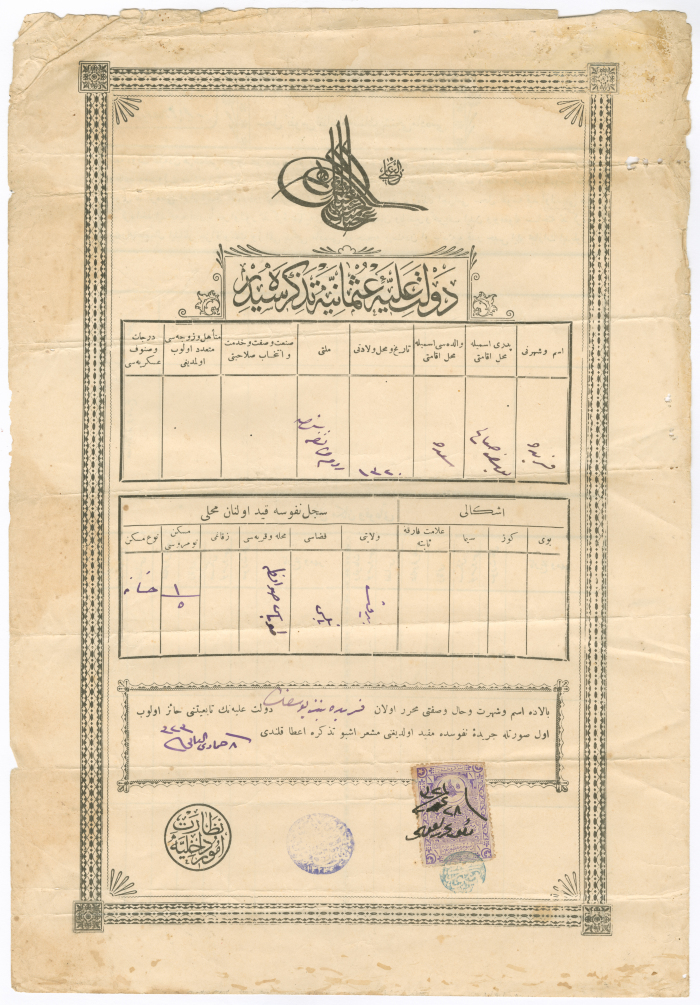 الغازی
دولت علیهٔ عثمانیه تذکره سیدر
اسم و شهرتی
پدری اسمیله محل اقامتی
والده سی اسمیله محل اقامتی
تاریخ و محل ولادتی
ملتی
صنعت و صفت و خدمت و انتخاب صلاحیتی
متأهل و زوجه سی متعدد اولوب اولمدیغی
درجات و صنوف عسکریه سی
فریده
سعده
١٣٢٠
اشکالی
سجل نفوسه قید اولنان محلی
بوی
کوز
سیما
علامت فارقه ثابته
ولایتی
قضاسی
محله و قریه سی
زقاغی
مسکن نومروسی
نوع مسکن
بیروت
نابلس
١/٥
خانه
بالاده اسم و شهرت و حال و صفتی محرر اولان فریده بنت یوسف دولت علیه نك تابعیتنی حائز اولوب
اول صورتله جریدهٔ نفوسده مقید اولدیغنی مشعر اشبو تذکره اعطا قلندی
نظارت امور داخلیه